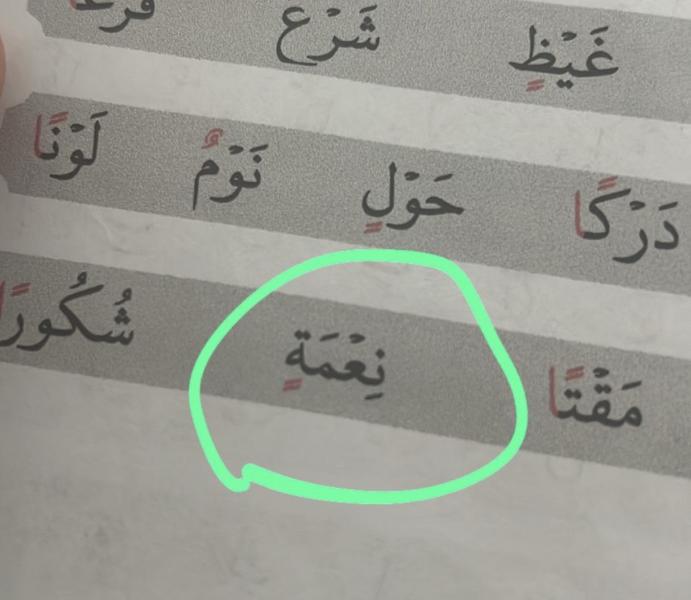 غَيْظٍ شَرْع
دَرْكًا حَوْلٍ نَوْمٌ لَوْنًا
مَقْتًا نِعْمَةٍ شُكُورًا